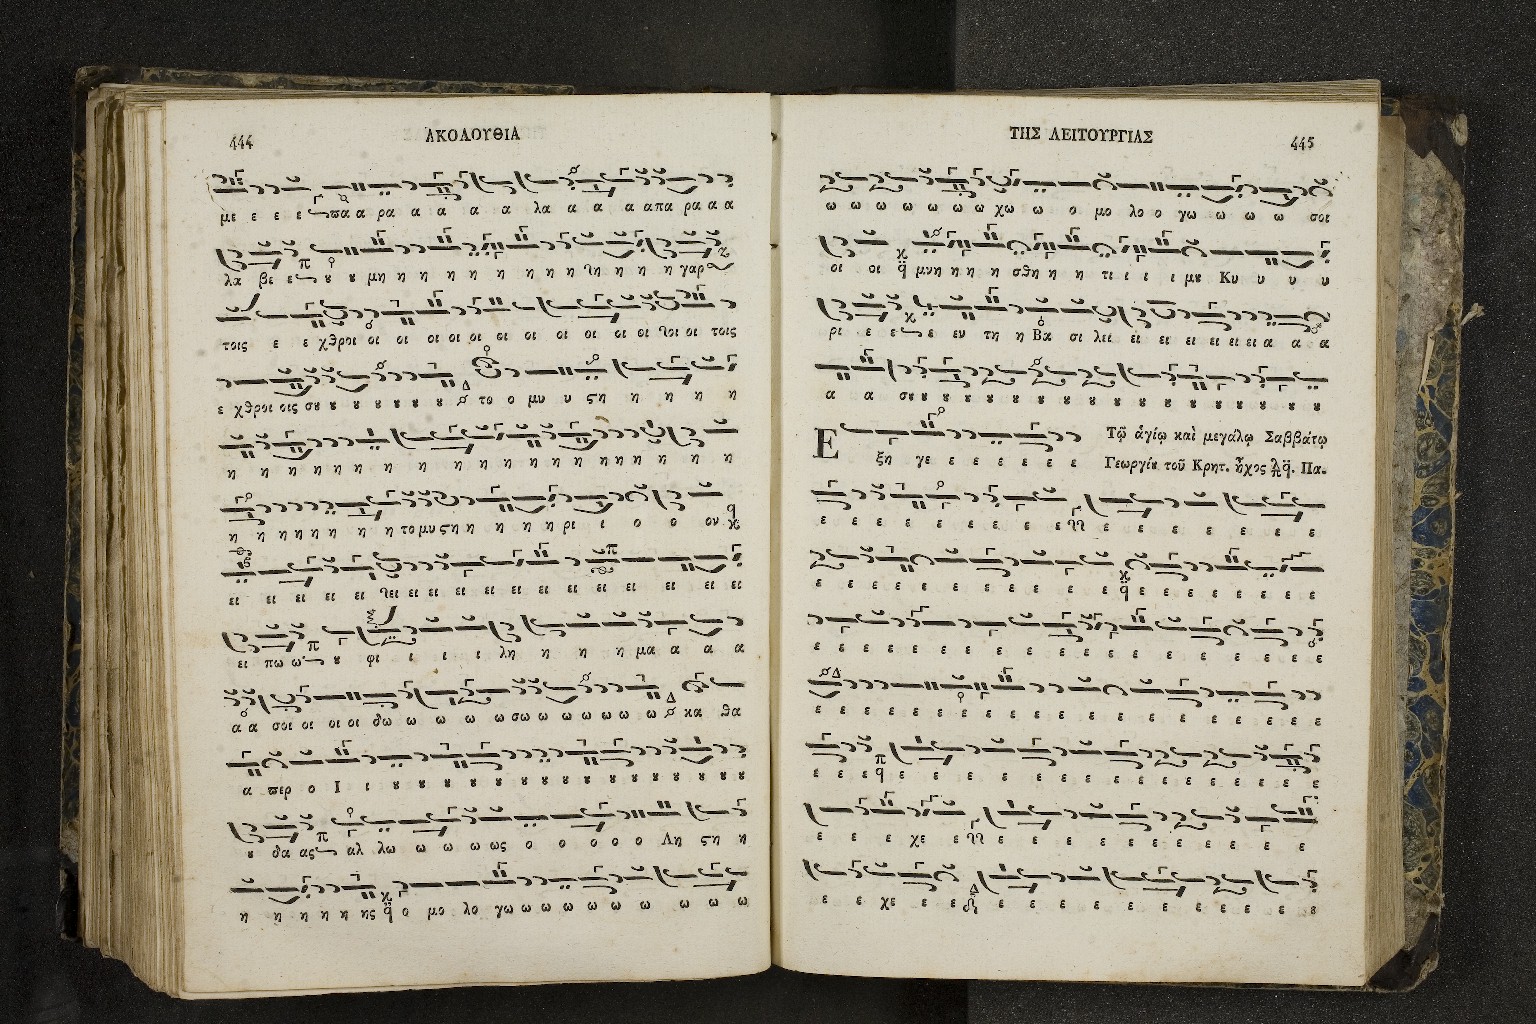 444
ΑΚΟΛΟΥΘΙΑ
με ε ε ε πα α ρα α α α α λα α α α απα ρα α α
λα βε ε ȣ ȣ μη η η η η η η η η η η η γαρ
τοις ε ε χθροι οι οι οι οι οι οι οι οι οι οι οι οι τοις
ε χθροι οις σȣ ȣ ȣ ȣ ȣ ȣ ȣ το ο μυ υ ϛη η η η η
η η η η η η η η η η η η η η η η η
η η η η η η η η το μυ ϛη η η η η η ρι ι ο ο ον
ει ει ει ει ει ει ει ει ει ει ει ει ει ει ει ει ει
ει πω ω ȣ φι ι ι ι λη η η η μα α α α
α α σοι οι οι οι δω ω ω ω ω σω ω ω ω ω ω ω κα θα
α περ ο Ι ι ȣ ȣ ȣ ȣ ȣ ȣ ȣ ȣ ȣ ȣ ȣ ȣ ȣ ȣ
ȣ δα ας αλ λω ω ω ω ως ο ο ο ο ο Λη ϛη η
η η η η η ης ο μο λο γω ω ω ω ω ω ω ω ω ω
ΤΗΣ ΛΕΙΤΟΥΡΓΙΑΣ
445
ω ω ω ω ω ω ω χω ω ο μο λο ο γω ω ω ω σοι
οι οι μνη η η η σθη η η τι ι ι ι μȣ Κυ υ υ υ
ρι ε ε ε εν τη η Βα σι λει ει ει ει ει ει ει α α α
α α σȣ ȣ ȣ ȣ ȣ ȣ ȣ ȣ ȣ ȣ ȣ ȣ ȣ ȣ ȣ ȣ
Τῷ ἁγίῳ καὶ μεγάλῳ Σαββάτῳ
Ε ξη γε ε ε ε ε ε ε
Γεωργίȣ τοῦ Κρητ. ἦχος Πα.
ε ε ε ε ε ε ε ε ε ε ε ε ε ε ε
ε ε ε ε ε ε ε ε ε ε ε ε ε ε ε ε ε ε
ε ε ε ε ε ε ε ε ε ε ε ε ε ε ε ε
ε ε ε ε ε ε ε ε ε ε ε ε ε ε ε ε ε
ε ε ε ε ε ε ε ε ε ε ε ε ε ε ε ε
ε ε ε χε ε ε ε ε ε ε ε ε ε ε ε
ε ε χε ε ε ε ε ε ε ε ε ε ε ε ε ε